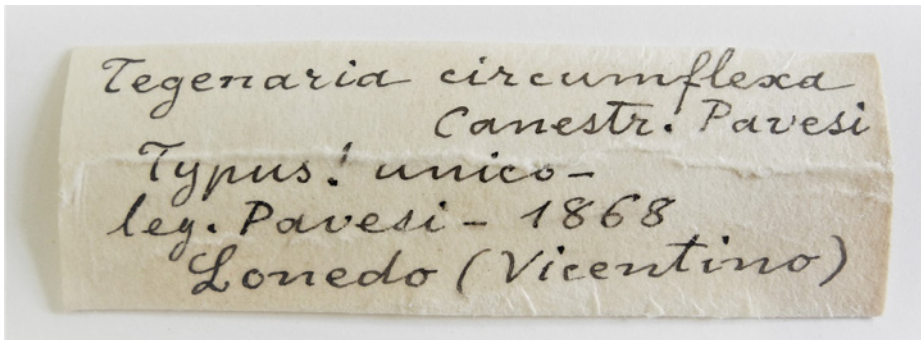 Tegenaria circumflexa
Canestr. Pavesi
Typus! unico-
leg. Pavesi - 1868
Lonedo (Vicentino)